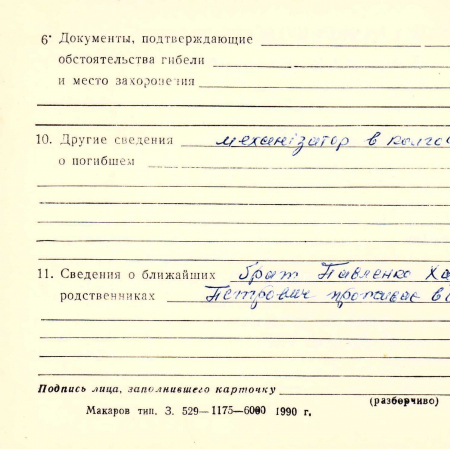 6· Документы, подтверждающие
обстоятельства гибели
и место захоронения
10. Другие сведения механізатор в колгос
о погибшем
11. Сведения о ближайших брат Павленко Ха
родственниках Петрович проживає в с
Подпись лица, заполнившего карточку
(разборчиво)
Макаров тип. З. 529—1175—6000 1990 г.